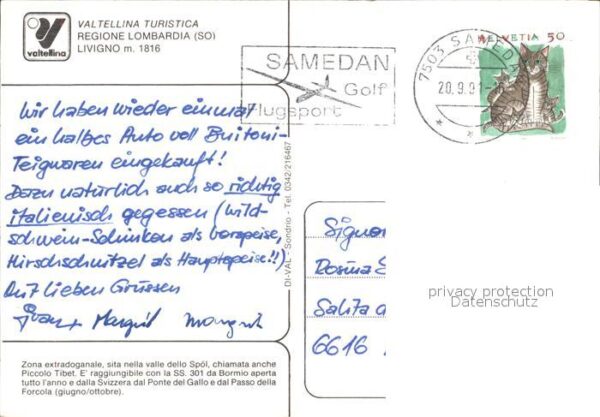 VALTELLINA TURISTICA
REGIONE LOMBARDIA (SO)
LIVIGNO m. 1816
valtellina
SAMEDAN
Golf
Flugsport
7503 SAMEDAN
20.9.91
HELVETIA 50
Wir haben wieder einmal
ein halbes Auto voll Buitoni-
Teigwaren eingekauft!
Dazu natürlich auch so richtig
italienisch gegessen (Wild-
schwein-Schinken als Vorspeise,
Hirschschnitzel als Hauptspeise!!)
Mit lieben Grüssen
Margrit
DI-VAL - Sondrio - Tel. 0342/216467
Signor
Rosina
Salita
6616
privacy protection
Datenschutz
Zona extradoganale, sita nella valle dello Spöl, chiamata anche
Piccolo Tibet. E' raggiungibile con la SS. 301 da Bormio aperta
tutto l'anno e dalla Svizzera dal Ponte del Gallo e dal Passo della
Forcola (giugno/ottobre).